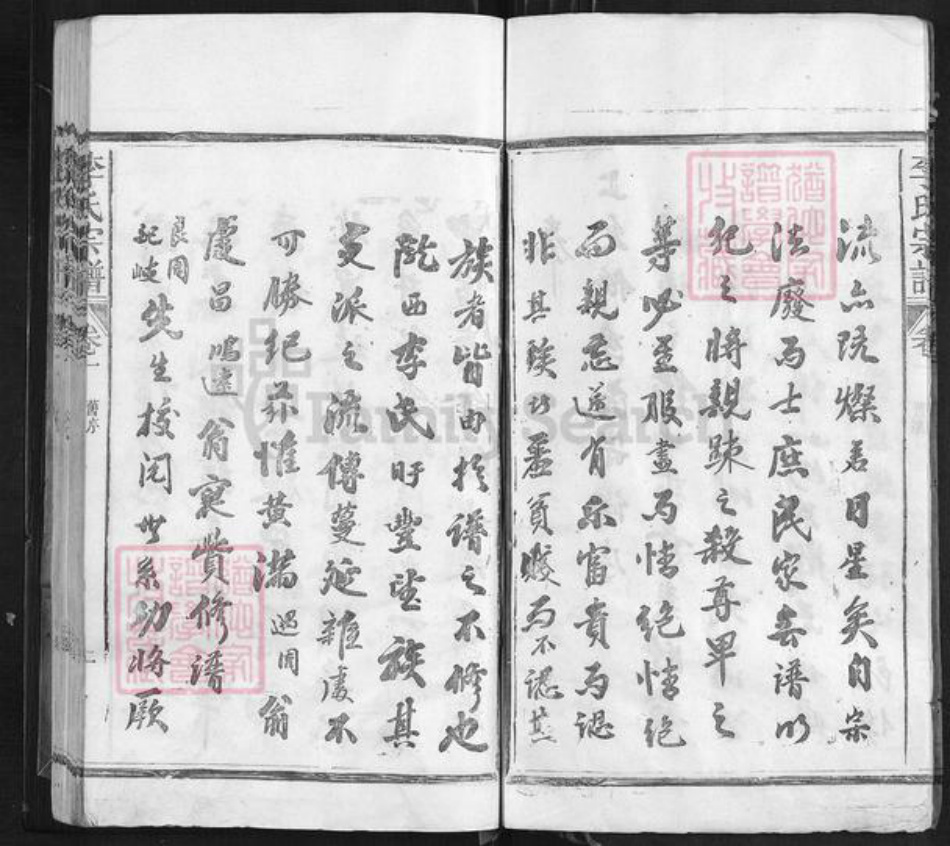 流亦既燦若日星矣自宗
法廢而士庶民家無譜以
紀之將親踈之殺尊卑之
等必至服盡而情絕情絕
而親忘遂有樂富貴而認
非其族羞貧賤而不認其
族者皆由於譜之不修也
隴西李氏旴豐望族其
支派之流傳蔓延雜處不
可勝紀茲惟黃滿迥周翁
慶昌鳴遠翁裒貲修譜
良周
起岐先生校閱世系功將厥
李氏宗譜
李氏宗譜 卷一
FamilySearch